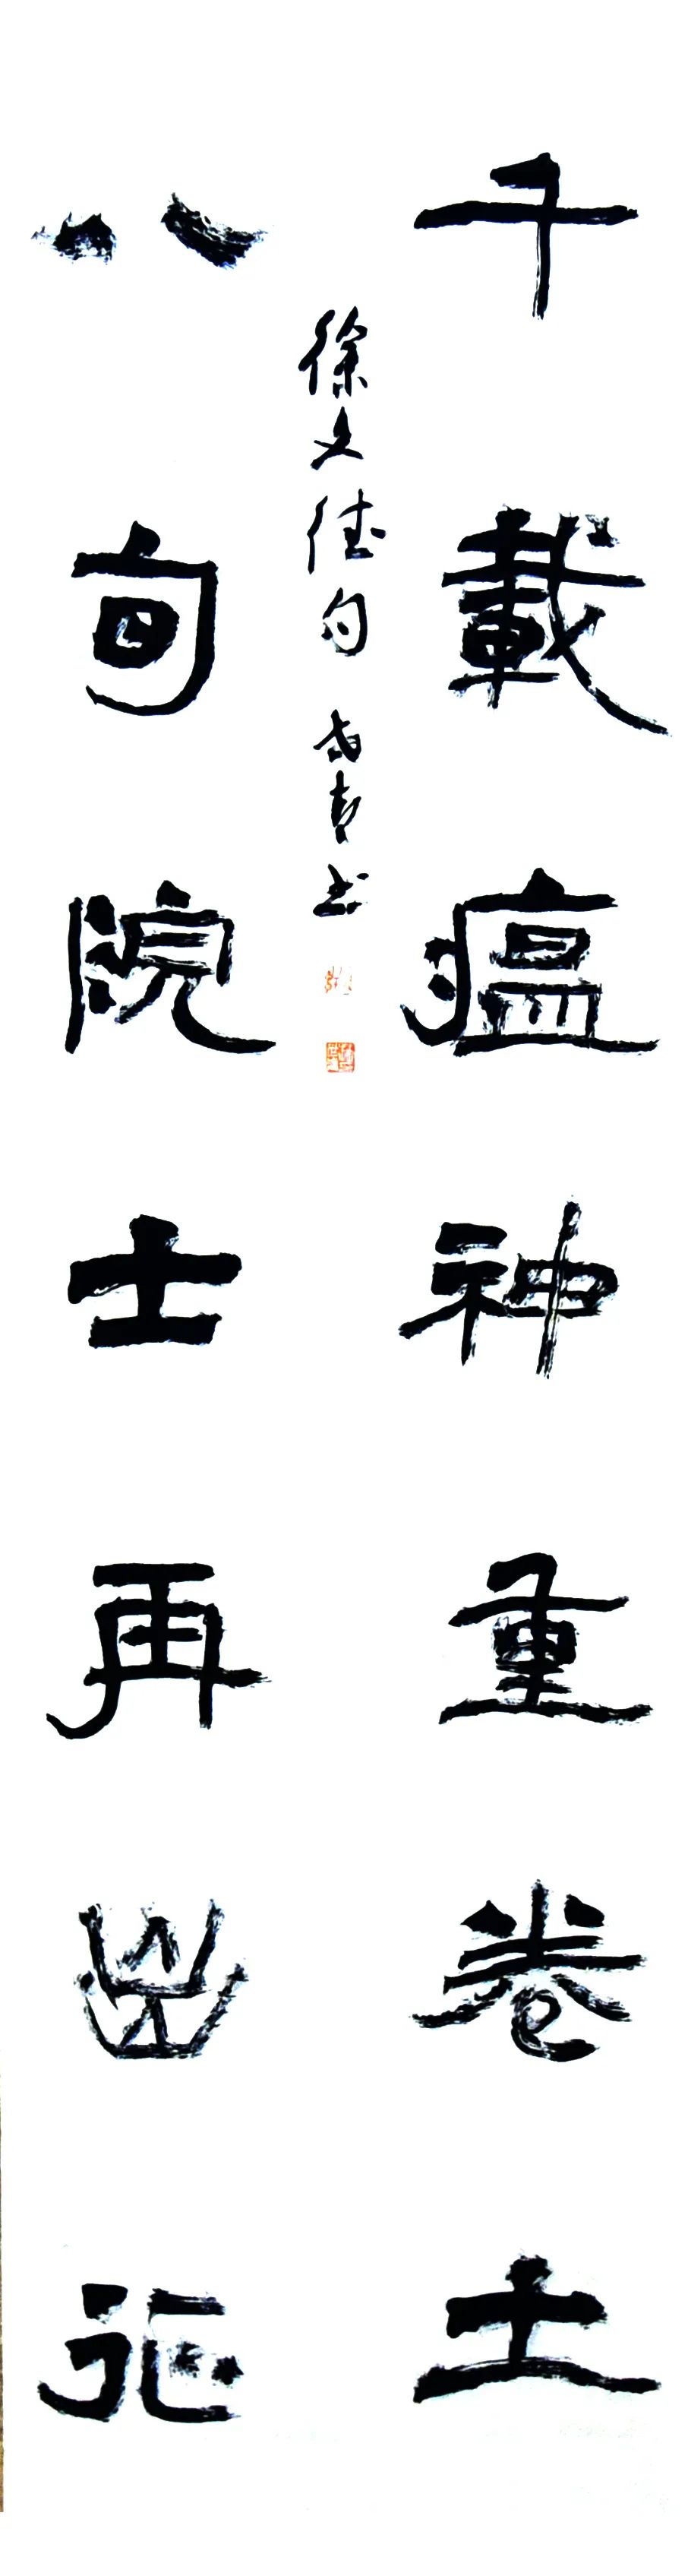 千載瘟神重卷土
八旬院士再出征
徐文德句